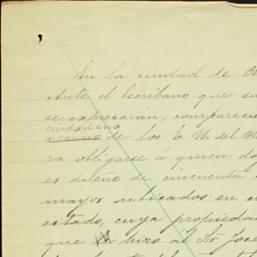 En la ciudad de
Ante el Escribano que su
se expresarán, comparece
ciudadano
vecino de los E. U. del M
za obligarse a quien do
es dueño de cincuenta
mayor ubicados en
estado, cuya propiedad
que hizo al Sr José